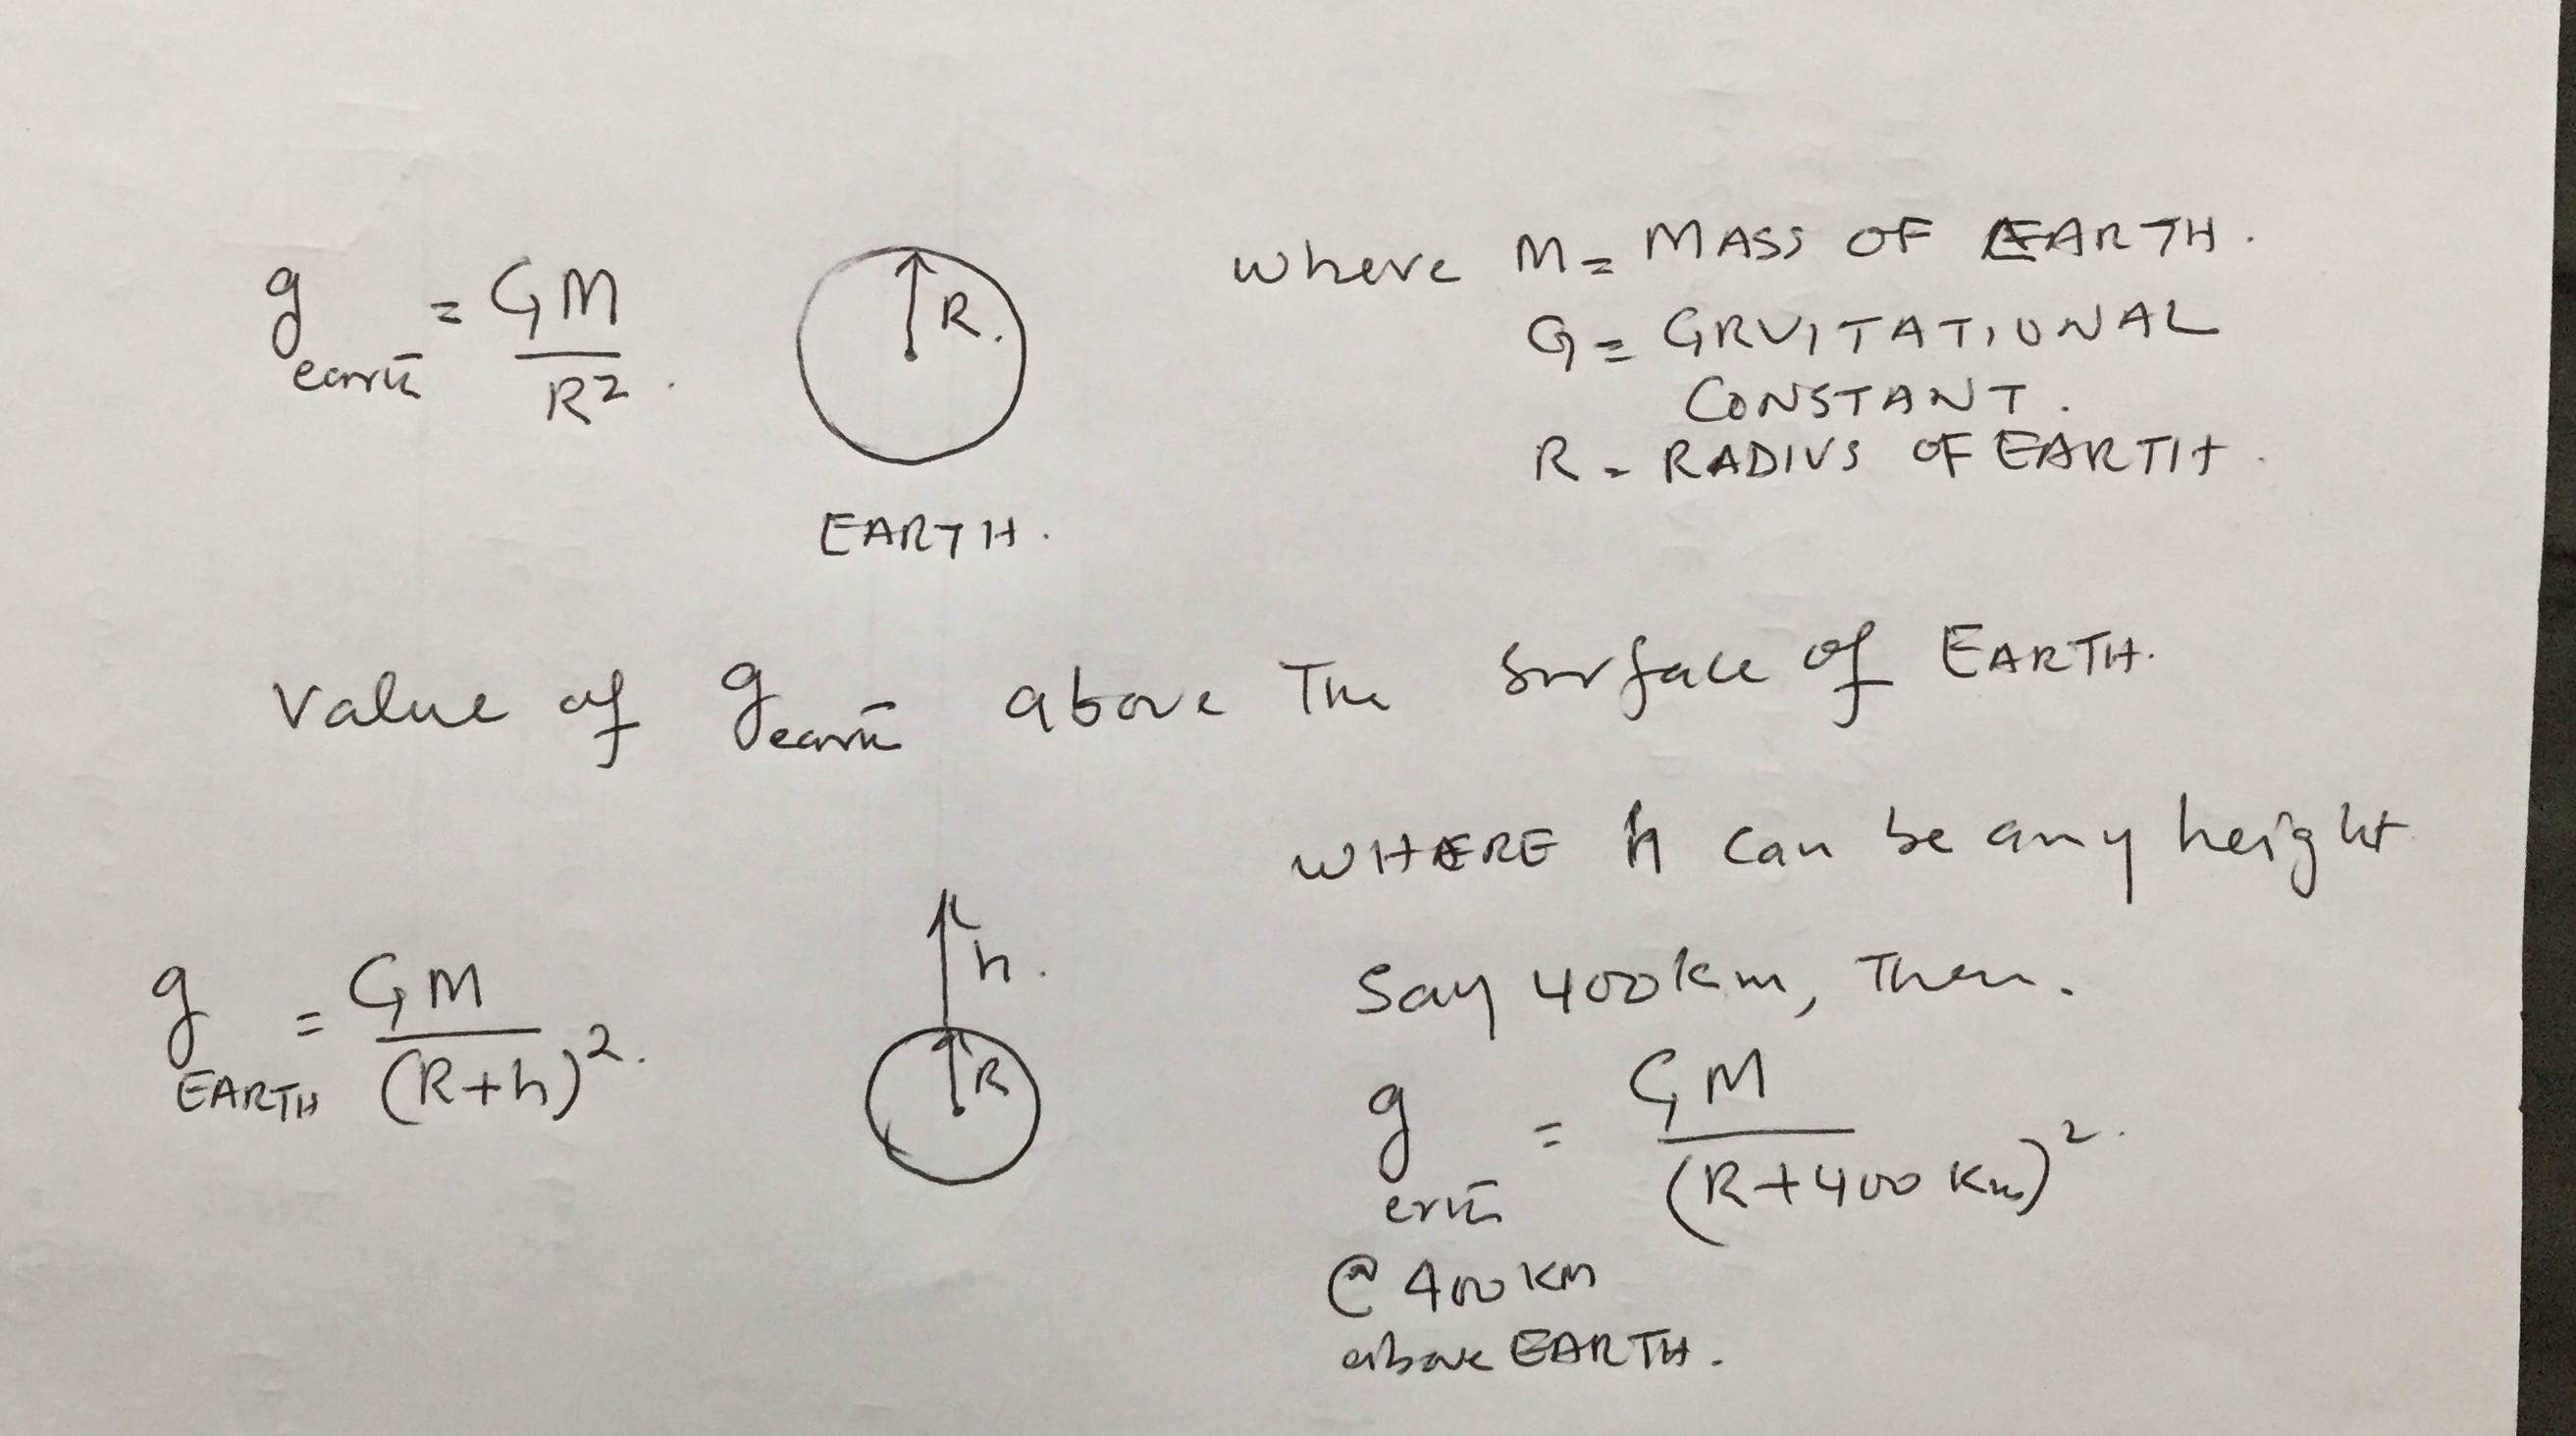 g earth = GM
R²
R.
EARTH.
where M = MASS OF EARTH.
G = GRVITATIONAL
CONSTANT.
R = RADIUS OF EARTH.
Value of g earth above The Surface of EARTH.
WHERE h can be any height
Say 400km, Then.
g EARTH = GM
(R+h)².
h.
R
g erth = GM
(R+400 Km)².
@ 400 KM
above EARTH.